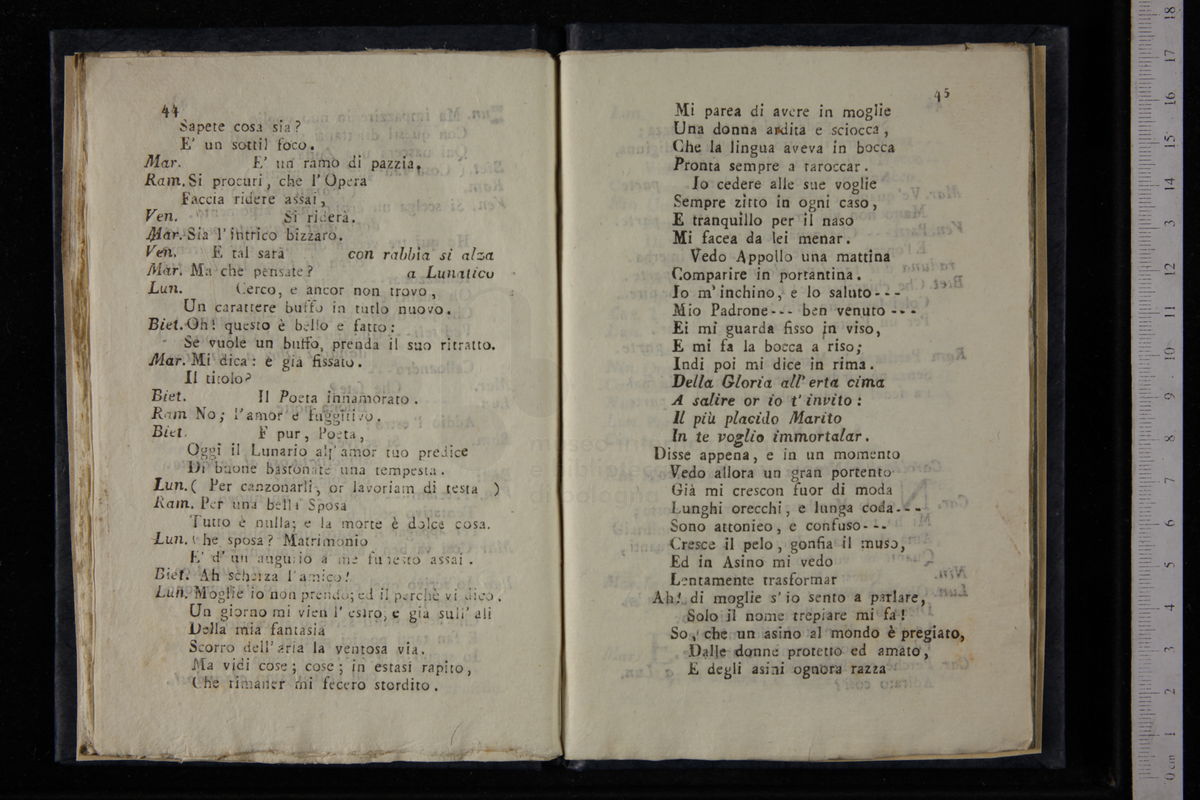 44
Sapete cosa sia?
E' un sottil foco.
Mar. E' un ramo di pazzia.
Ram. Si procuri, che l'Opera
Faccia ridere assai,
Ven. Si riderà.
Mar. Sia l'intrico bizzaro.
Ven. E tal sarà con rabbia si alza
Mar. Ma che pensate? a Lunatico
Lun. Cerco, e ancor non trovo,
Un carattere buffo in tutto nuovo.
Biet. Oh! questo è bello e fatto:
Se vuole un buffo, prenda il suo ritratto.
Mar. Mi dica: è già fissato.
Il titolo?
Biet. Il Poeta innamorato.
Ram No; l'amor è fuggitivo.
Biet. E pur, Poeta,
Oggi il Lunario all' amor tuo predice
Di buone bastonate una tempesta.
Lun. ( Per canzonarli, or lavoriam di testa )
Ram. Per una bella Sposa
Tutto è nulla; e la morte è dolce cosa.
Lun. Che sposa? Matrimonio
E' d' un augurio a me funesto assai.
Biet. Ah scherza l'amico!
Lun. Moglie io non prendo; ed il perchè vi dico.
Un giorno mi vien l' estro, e già sull' ali
Della mia fantasia
Scorro dell' aria la ventosa via.
Ma vidi cose; cose; in estasi rapito,
Che rimaner mi fecero stordito.
45
Mi parea di avere in moglie
Una donna ardita e sciocca,
Che la lingua aveva in bocca
Pronta sempre a taroccar.
Io cedere alle sue voglie
Sempre zitto in ogni caso,
E tranquillo per il naso
Mi facea da lei menar.
Vedo Appollo una mattina
Comparire in portantina.
Io m' inchino, e lo saluto---
Mio Padrone--- ben venuto ---
Ei mi guarda fisso in viso,
E mi fa la bocca a riso;
Indi poi mi dice in rima.
Della Gloria all' erta cima
A salire or io t' invito:
Il più placido Marito
In te voglio immortalar.
Disse appena, e in un momento
Vedo allora un gran portento
Già mi crescon fuor di moda
Lunghi orecchi, e lunga coda---
Sono attonieo, e confuso---
Cresce il pelo, gonfia il muso,
Ed in Asino mi vedo
Lentamente trasformar
Ah! di moglie s' io sento a parlare,
Solo il nome trepiare mi fa!
So, che un asino al mondo è pregiato,
Dalle donne protetto ed amato,
E degli asini ognora razza